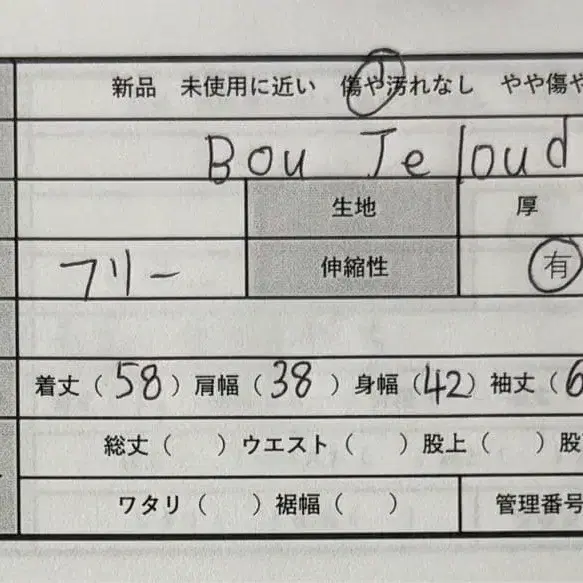 新品 未使用に近い 傷や汚れなし やや傷や
Bou Jeloud
生地 厚
フリー 伸縮性 有
着丈（58）肩幅（38）身幅（42）袖丈（6
総丈（ ）ウエスト（ ）股上（ ）股
ワタリ（ ）裾幅（ ） 管理番号